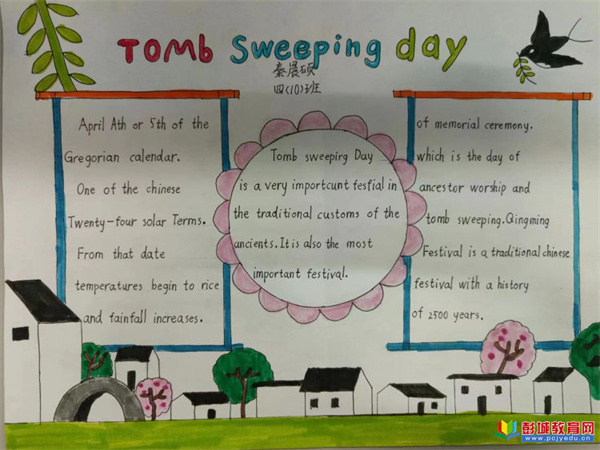 Tomb Sweeping day
秦晨硕
四(10)班
April Ath or 5th of the
Gregorian calendar.
One of the chinese
Twenty-four solar Terms.
From that date
temperatures begin to rice
and fainfall increases.
Tomb sweepirg Day
is a very importcunt fesfial in
the traditional customs of the
ancients. It is also the most
important festival.
of memorial ceremony.
which is the day of
ancestor worship and
tomb sweeping. Qingming
Festival is a traditional chinese
festival with a history
of 2500 years.
彭城教育网
www.pcjyedu.cn